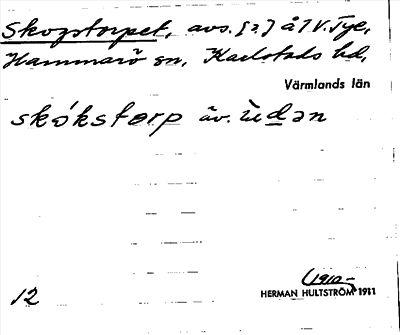 Skogstorpet, avs. [?] å 1 V. Tye,
Hammarö sn, Karlstads hd,
Värmlands län
skókstorp äv. ùdən
12
(1910-
HERMAN HULTSTRÖM 1911